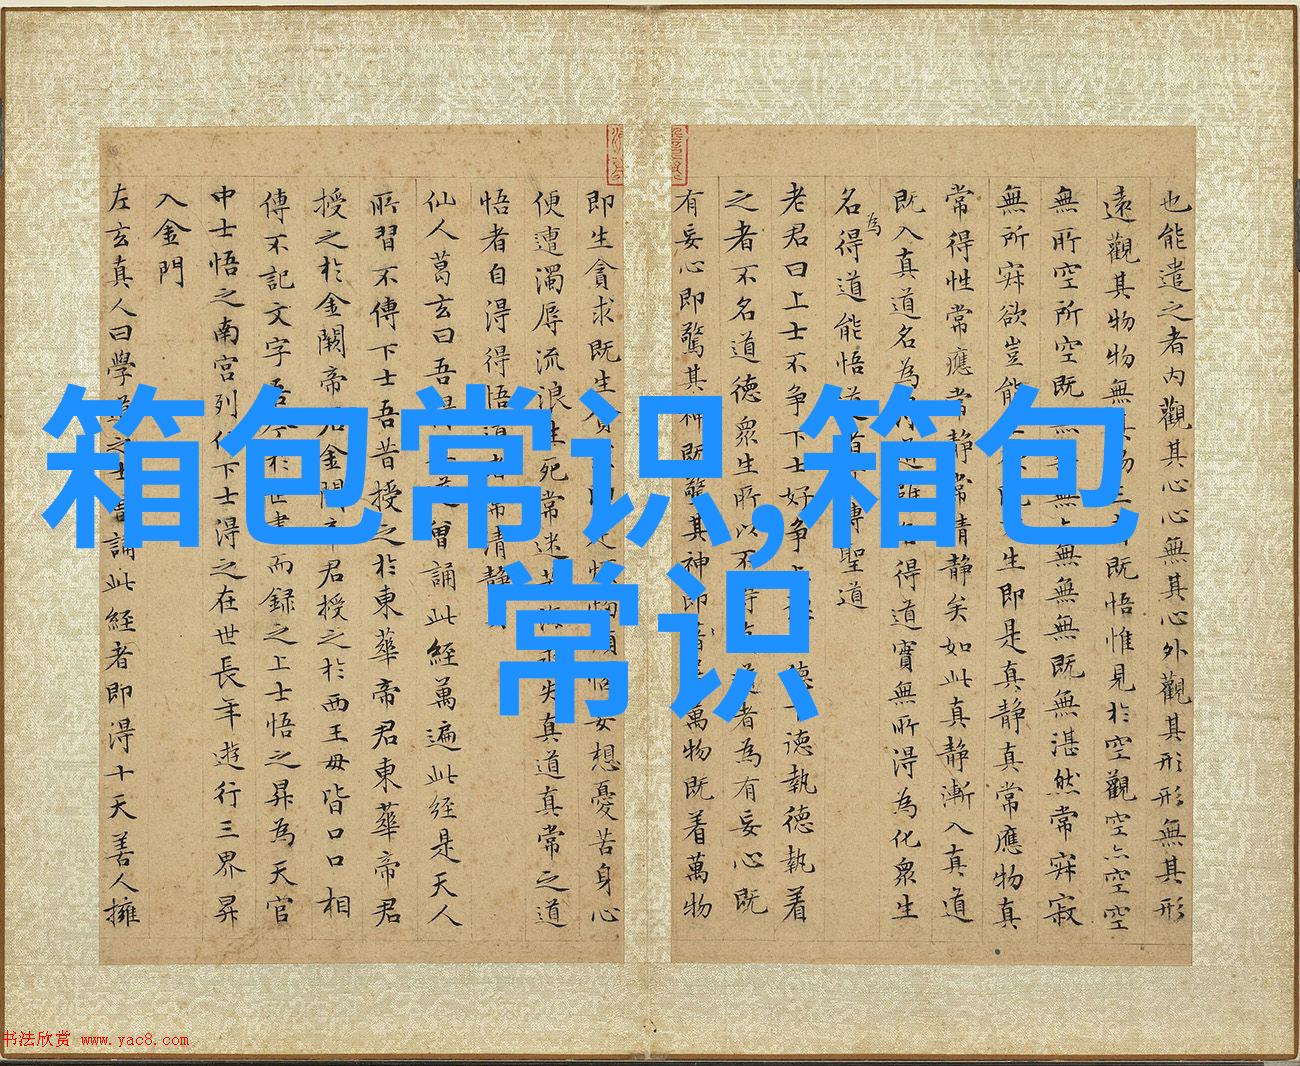 箱包常识,箱包
常识
也能遣之者内觀其心心無其心外觀其形形無其形
遠觀其物物無其物三者既悟惟見於空觀空亦空空
無所空所空既無無無亦無無無既無湛然常寂寂
無所寂欲豈能生欲既不生即是真静真常應物真
常得性常應常静常清静矣如此真静漸入真道
既入真道名為得道雖名得道實無所得為化衆生
名為得道能悟道者可傳聖道
老君曰上士不争下士好争上德不德下德執德執着
之者不名道德衆生所以不得真道者為有妄心既
有妄心即驚其神既驚其神即著萬物既着萬物
即生貪求既生貪求即是煩惱妄想憂苦身心
便遭濁辱流浪生死常沉苦海永失真道真常之道
悟者自得得悟道者常清静矣
仙人葛玄曰吾得真道曾誦此經萬遍此經是天人
所習不傳下士吾昔授之於東華帝君東華帝君
授之於金闕帝君金闕帝君授之於西王母皆口口相
傳不記文字吾今於世書而録之上士悟之昇為天官
中士悟之南宫列仙下士得之在世長年遊行三界昇
入金門
左玄真人曰學道之士持誦此經者即得十天善人擁
书法欣赏 www.yac8.com